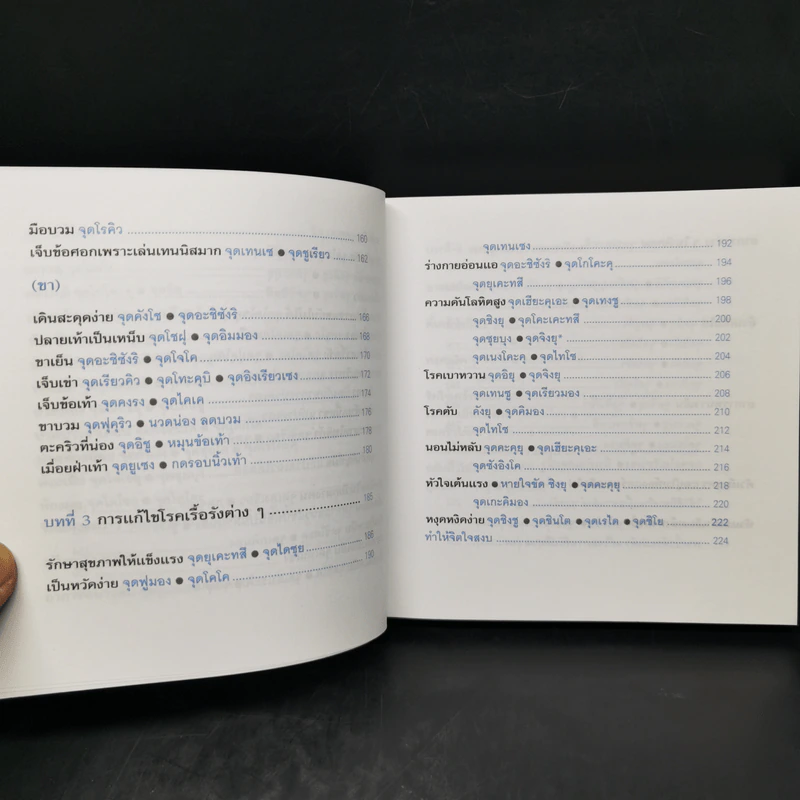 มือบวม จุดโรคิว 160
เจ็บข้อศอกเพราะเล่นเทนนิสมาก จุดเทนเซ ● จุดชูเรียว 162
(ขา)
เดินสะดุดง่าย จุดคังโช ● จุดอะชิซังริ 166
ปลายเท้าเป็นเหน็บ จุดโชฝุ ● จุดอิมมอง 168
ขาเย็น จุดอะชิซังริ ● จุดโจโค 170
เจ็บเข่า จุดเรียวคิว ● จุดโทะคุบิ ● จุดอิงเรียวเซง 172
เจ็บข้อเท้า จุดคงรง ● จุดไคเค 174
ขาบวม จุดฟุคุริว ● นวดน่อง ลดบวม 176
ตะคริวที่น่อง จุดอิชู ● หมุนข้อเท้า 178
เมื่อยฝ่าเท้า จุดยูเซง ● กดรอบนิ้วเท้า 180
บทที่ 3 การแก้ไขโรคเรื้อรังต่าง ๆ 185
รักษาสุขภาพให้แข็งแรง จุดยุเคะทสึ ● จุดไดชุย 186
เป็นหวัดง่าย จุดฟูมอง ● จุดโคโค 190
จุดเทนเซง 192
ร่างกายอ่อนแอ จุดอะชิซังริ ● จุดโกโคะคุ 194
จุดยุเคะทสึ 196
ความดันโลหิตสูง จุดเฮียะคุเอะ ● จุดเทงชู 198
จุดชิงยุ ● จุดโคะเคะทสึ 200
จุดชุยบุง ● จุดจิงยุ* 202
จุดเนงโคะคุ ● จุดไทโช 204
โรคเบาหวาน จุดอิยุ ● จุดจิงยุ 206
จุดเทนชู ● จุดเรียวมอง 208
โรคตับ คังยุ ● จุดคิมอง 210
จุดไทโช 212
นอนไม่หลับ จุดคะคุยุ ● จุดเฮียะคุเอะ 214
จุดซังอิงโค 216
หัวใจเต้นแรง ● หายใจขัด ชิงยุ ● จุดคะคุยุ 218
จุดเกะคิมอง 220
หงุดหงิดง่าย จุดชิงชู ● จุดชินโต ● จุดเรไต ● จุดชิโย ● 222
ทำให้จิตใจสงบ 224